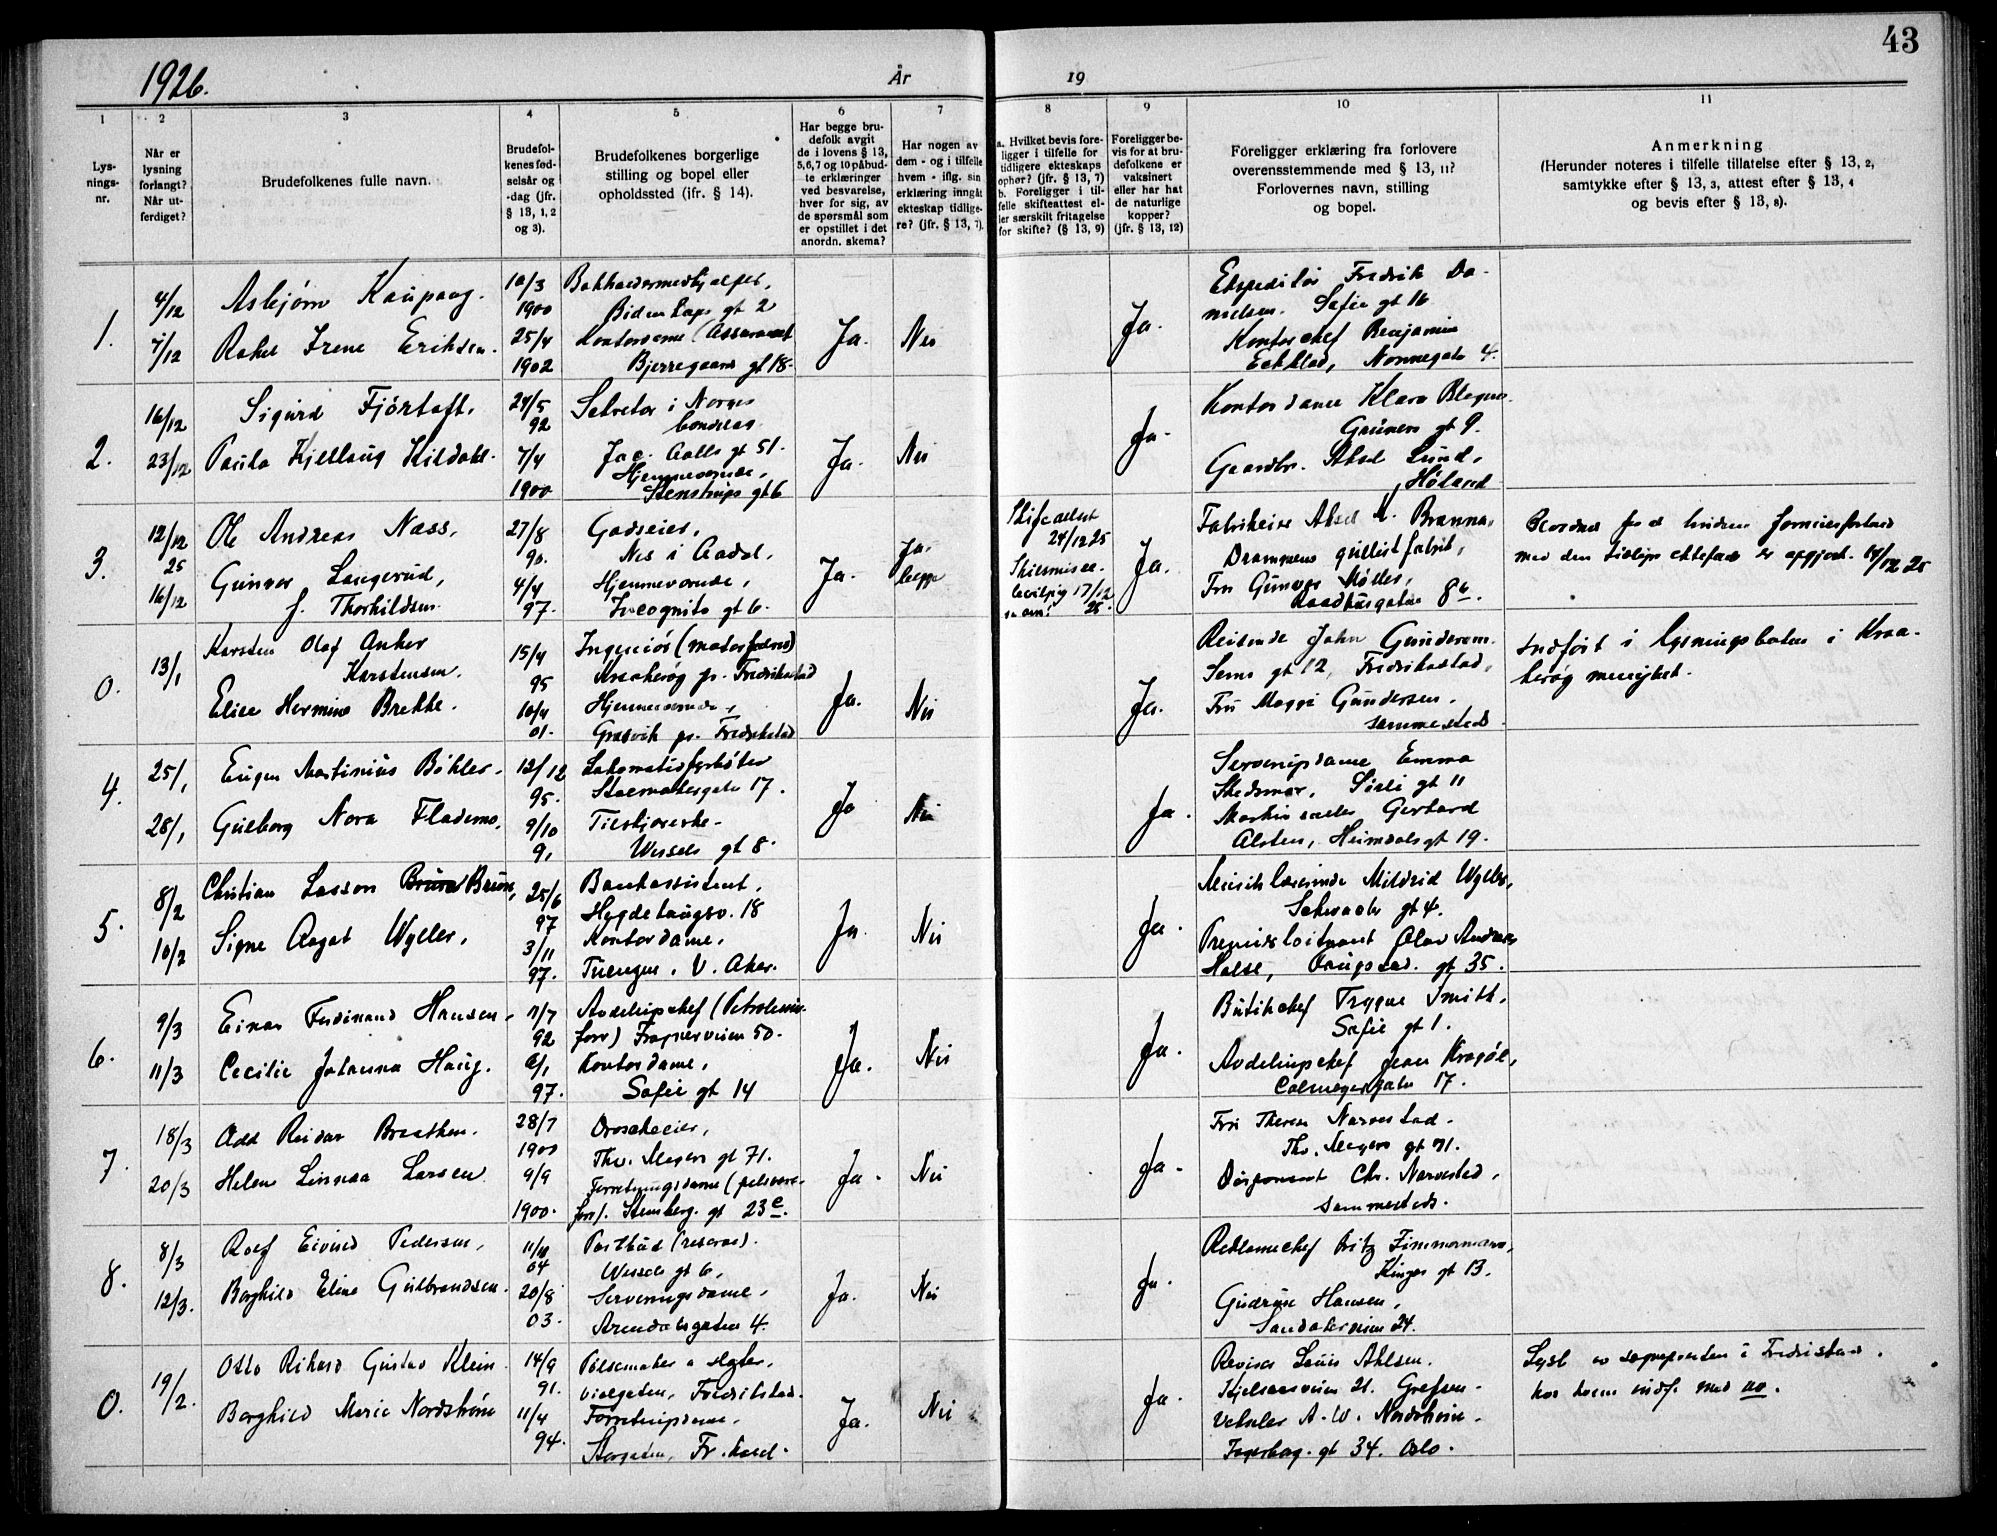 43
1926.
År
19
1
2
3
4
5
6
7
8
9
10
11
Lys-
nings-
nr.
Når er
lysning
forlangt?
Når ut-
ferdiget?
Brudefolkenes fulle navn.
Brudefol-
kenes fød-
selsår og
-dag (jfr.
§ 13, 1, 2
og 3).
Brudefolkenes borgerlige
stilling og bopel eller
opholdssted (jfr. § 14).
Har begge bru-
defolk avgit
de i lovens § 13,
5, 6, 7 og 10 påbud-
te erklæringer
ved besvarelse,
hver for sig, av
de spørsmål som
er opstillet i det
anordn. skema?
Har nogen av
dem - og i tilfelle
hvem - iflg. sin
erklæring inngåt
ekteskap tidlige-
re? (jfr. § 13, 7).
a. Hvilket bevis fore-
ligger i tilfelle for
tidligere ekteskaps
ophør? (jfr. § 13, 7)
b. Foreligger i til-
felle skifteattest el-
ler særskilt fritagelse
for skifte? (§ 13, 9)
Foreligger be-
vis for at bru-
defolkene er
vaksinert
eller har hat
de naturlige
kopper?
(jfr. § 13, 12)
Foreligger erklæring fra forlovere
overensstemmende med § 13, 11?
Forlovernes navn, stilling
og bopel.
Anmerkning
(Herunder noteres i tilfelle tillatelse efter § 13, 2,
samtykke efter § 13, 3, attest efter § 13, 4
og bevis efter § 13, 8).
1.
4/12
7/12
Asbjørn Kaupang.
Rakel Irene Eriksen.
10/3
1900
25/4
1902
Bjerregaards gt 18.
Ja.
Nei
Ja.
Ekspeditør Fredrik Da-
nielsen. Sofie gt 16
Kontorchef Benjamin
Nonnegata 4.
2.
16/12
23/12
Sigurd Fjørtoft.
Paula Kjellaug Kildahl.
24/5
92
7/4
1900
Sekretær i Norges
bondelag
Jac. Aalls gt 51.
Hjemmeværende,
Stenstrups gt 6
Ja.
Nei
Ja.
Kontordame Klara
Grüners gt 9.
Gaardbr. Aksel Lund,
Høland
3.
12/12
25
16/12
Ole Andreas Næss,
Gunvor Langerud,
f. Thorkildsen.
27/8
90.
4/4
97.
Godseier,
Nes i Aadal.
Hjemmeværende,
Incognito gt 6.
Ja.
Ja.
begge
Skifteattest
24/12 25
17/12
25.
Ja.
Drammens
Fru Gunvor Møller,
Raadhusgaten 8 b.
med den tidligere ektefælle er opgjort. 14/12 25
0.
13/1
Karsten Olaf Anker
Karstensen.
Elise Hermine Brekke.
15/4
95
10/4
01.
Kraakerøy pr. Fredrikstad
Hjemmeværende,
Gressvik pr. Fredrikstad
Ja.
Nei
Ja.
Reisende John Gundersen.
Sems gt 12, Fredrikstad,
Fru Magna Gundersen,
sammesteds.
Indført i lysningsboken i Kraa-
kerøy menighet.
4.
25/1
28/1
Eugen Martinius Bøhler.
Gulborg Nora Fladmo.
12/12
95.
9/10
9,
Lokomotivfyrbøter
17.
Tilskjærerske.
Wessels gt 8.
Ja
Nei
Ja.
Serveringsdame Emma
Stedsmor, Sørli gt 11
Gerhard
Alsten, Heimdals gt 19.
5.
8/2
10/2
Christian Lasson Bruun,
Signe Aagot Wyller,
25/6
97
3/11
97.
Bankassistent,
18
Kontordame,
Tuengen. V. Aker.
Ja.
Nei
Ja.
Musiklærerinde Mildrid Wyller,
Schwachs gt 4.
Premierløitnant Olav Andreas
gt 35.
6.
9/3
11/3
Einar Ferdinand Hansen,
Cecilie Johanna Haug.
92
97.
Avdelingschef (Petroleums-
forr) Frognerveien 50.
Kontordame,
Sofie gt 14
Ja.
Nei
Ja.
Butikchef Trygve Smith,
Sofie gt 1.
Avdelingschef Jean
Colmeyergaten 17.
7.
18/3
20/3
Odd Reidar Braathen.
Helene Linnea Larsen
28/7
1900
9/9
1900.
Droscheeier,
Th. Meyers gt 71.
Forretningsdame (pelsvare-
forr). Stensberg. gt 23 c.
Ja.
Nei
Ja.
Th. Meyers gt 71.
Disponent Chr. Narvestad,
sammesteds.
8.
8/3
12/3.
Rolf Eivind Pedersen,
Borghild Eline Gulbrandsen.
11/10
04
20/8
03.
Postbud (reserve).
Wessels gt 6,
Serveringsdame,
Arendalsgaten 4.
Ja.
Nei
Ja.
Reklamechef Fritz Zimmermann,
Kings gt 13.
Gudrun Hansen,
Sandakerveien 24.
0.
19/2.
Otto Rikard Gustav Klein
Borghild Marie Nordstrøm
14/9
91.
11/4
94.
Pølsemaker
Fredrikstad.
Forretningsdame.
Storgaten, Fr.stad.
Ja.
Nei
Ja.
Revisor Louis Ahlsen.
Kjelsaasveien 21. Grefsen.
A. W. Nordstrøm.
Ingeborg. gt 34. Oslo.
Lyst av sognepresten i Fredrikstad.
med